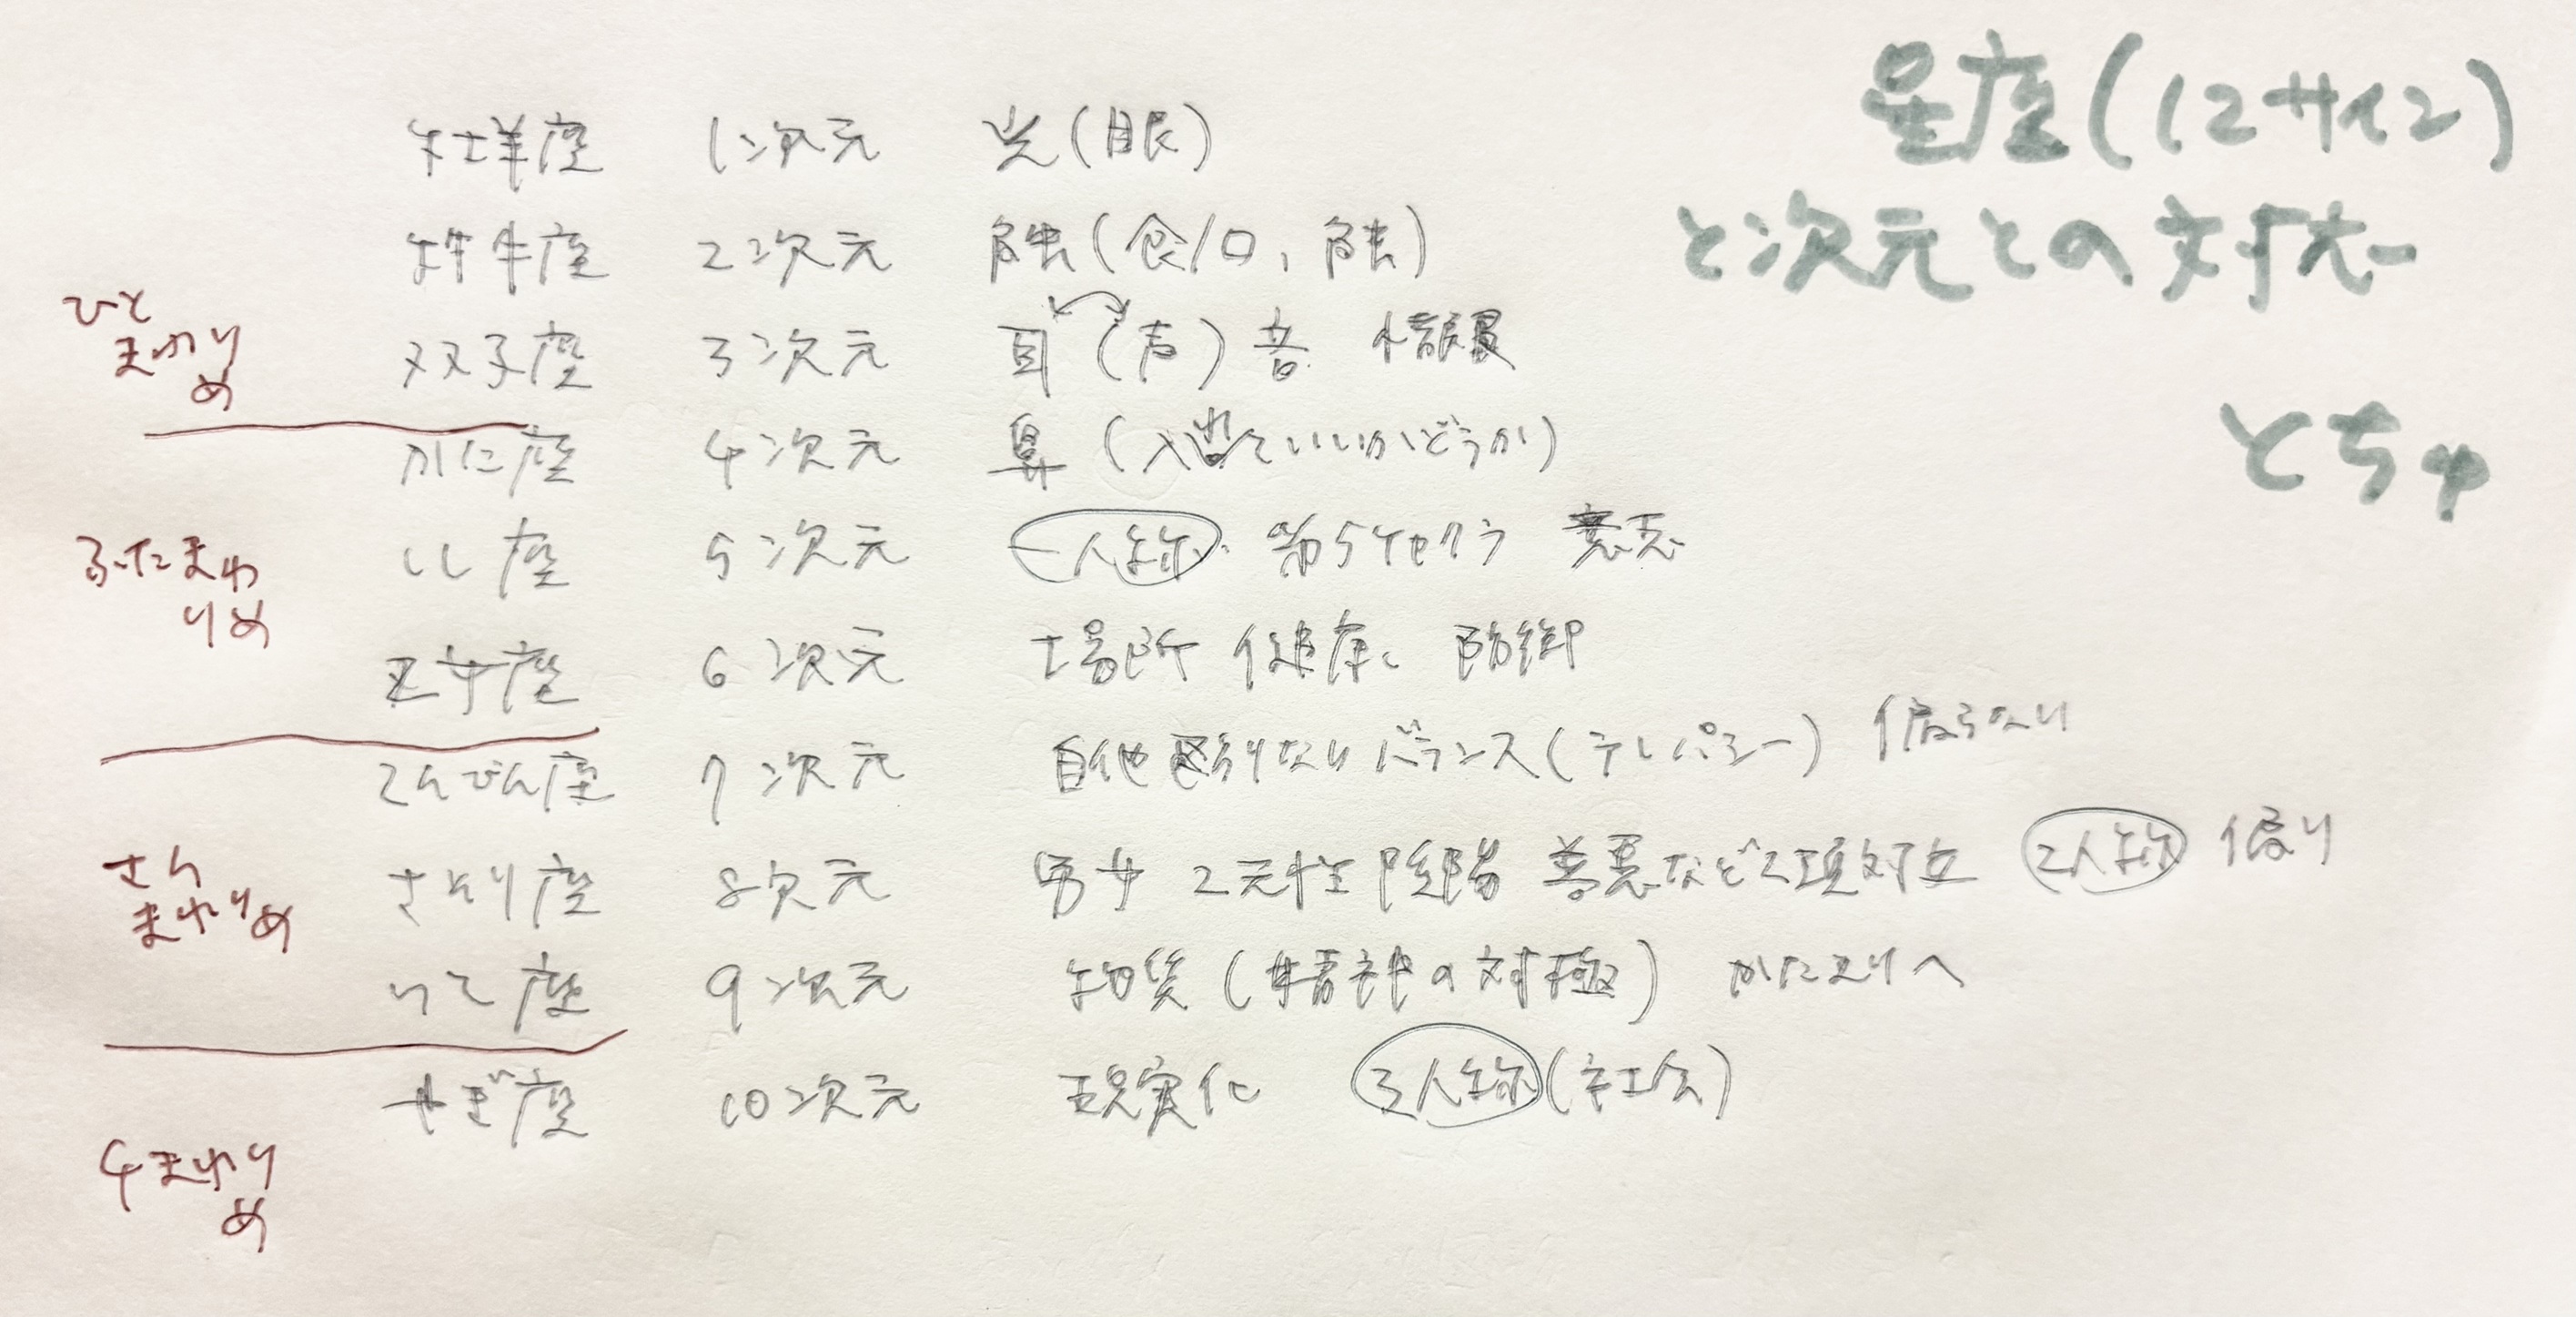 星座(12サイン)
と次元との対応
とちゅ
牡羊座 1次元 光(眼)
牡牛座 2次元 触(食/口、触)
双子座 3次元 耳(声)音 情報
ひと
まわり
め
かに座 4次元 鼻(入れていいかどうか)
しし座 5次元 一人称 第5チャクラ 意志
ふたまわ
りめ
乙女座 6次元 場所 健康 防御
てんびん座 7次元 自他 偏りなし バランス(テレパシー) 偏らない
さそり座 8次元 男女 2元性 陰陽 善悪など2項対立 2人称 偏り
さん
まわりめ
いて座 9次元 物質(精神の対極) かたよりへ
やぎ座 10次元 現実化 3人称(社会)
4まわり
め